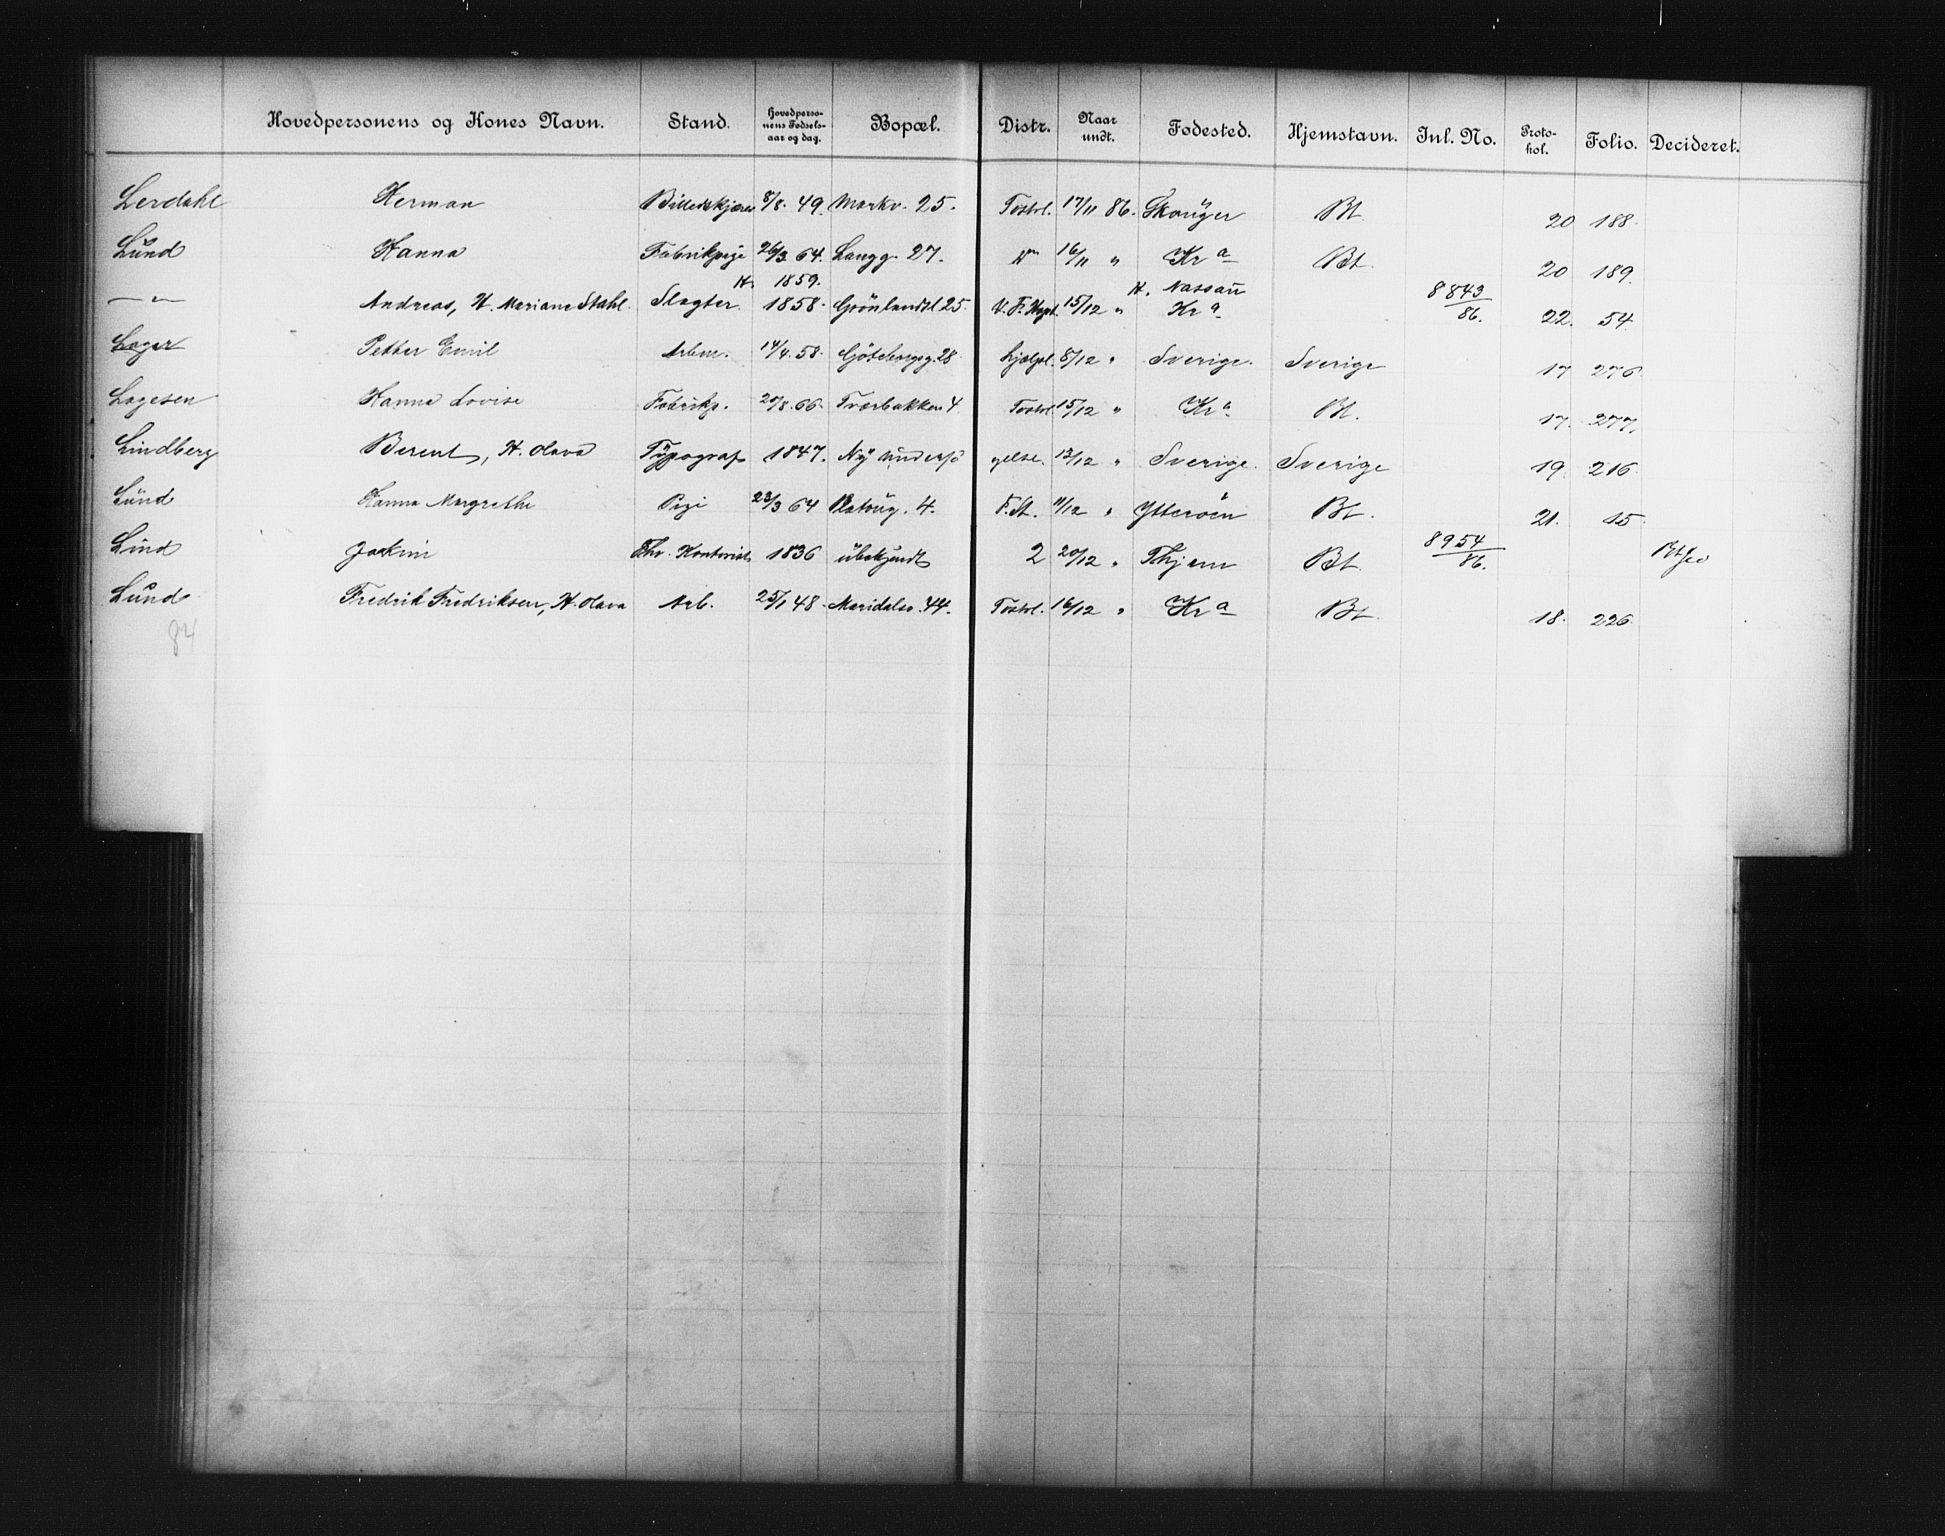 Hovedpersonens og Kones Navn. Stand. Hovedpersonens Fødselsaar og dag. Bopæl. Distr. Naar undt. Fødested. Hjemstavn. Inl. No. Protokol. Folio. Decideret.
Lerdahl Herman Billedskjærer 8/8. 49. Markv. 25. Tostrl. 17/11 86. Skouger Bt 20 188.
Lund Hanna Fabrikpige 26/3 64. Langg. 27. 16/11 " Kr a Bt. 20 189.
H. 1859. H. Nassau
— " — Andreas, H. Mariane Stahl. Slagter. 1858. Grönlandsl 25. V. F. Hospt. 15/12 " Kr a. 8843/86. 22. 54.
Lager Petter Emil Arbm. 14/4. 58. Göteborgsg. 28. Hjælpl. 8/12 " Sverige. Sverige 17 276.
Lagesen Hanna Lovise Fabrikp. 20/8. 66. Tværbakken 4. Tostrl 15/12 " Kr a. Bt. 17. 277.
Lindberg Berent, H. Olava Typograf 1847. Ny undersö gelse. 13/12 " Sverige. Sverige 19. 216.
Lund Hanna Margrethe Pige 23/3 64 4. F. St. 11/12 " Ytteröen Bt. 21. 15.
Lind Joakim Fhv. Kontorist 1836 ubekjendt 2 20/12 " Thjem Bt. 8954/86.
Lund Fredrik Fredriksen, H. Olava Arb. 25/1 48. Maridalsv. 44. Tostrl. 16/12 " Kr a Bt. 18. 226.
84